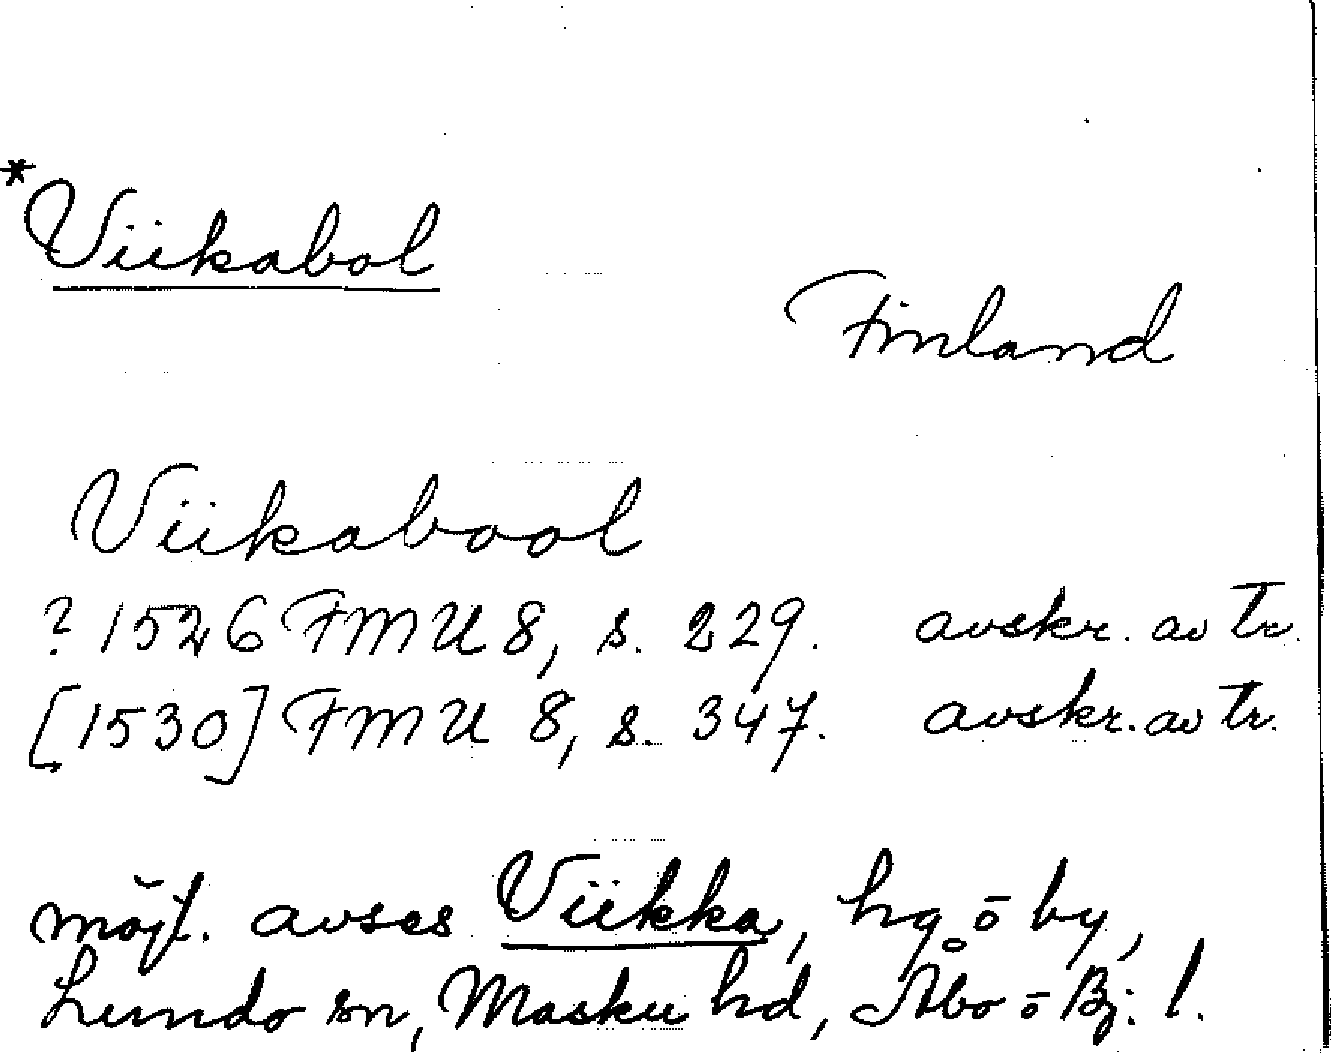 *Viikabol
Finland
Viikabool
? 1526 FMU 8, s. 229. avskr. av tr.
[1530] FMU 8, s. 347. avskr. av tr.
möjl. avses Viikka, hg ō by,
Lundo sn, Masku hd, Åbo ō Bj. l.